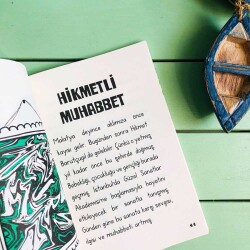 HİKMETLİ
MUHABBET
Malatya deyince aklımıza önce
kayısı gelir. Bugünden sonra Hikmet
Barutçugil de gelebilir. Çünkü o yetmiş
yıl kadar önce bu şehirde doğmuş.
Bebekliği, çocukluğu ve gençliği burada
geçmiş. İstanbul'da Güzel Sanatlar
Akademisine başlamasıyla hayatını
etkileyecek bir sanatla tanışmış.
Günden güne bu sanata karşı sevgisi,
ilgisi ve muhabbeti artmış.